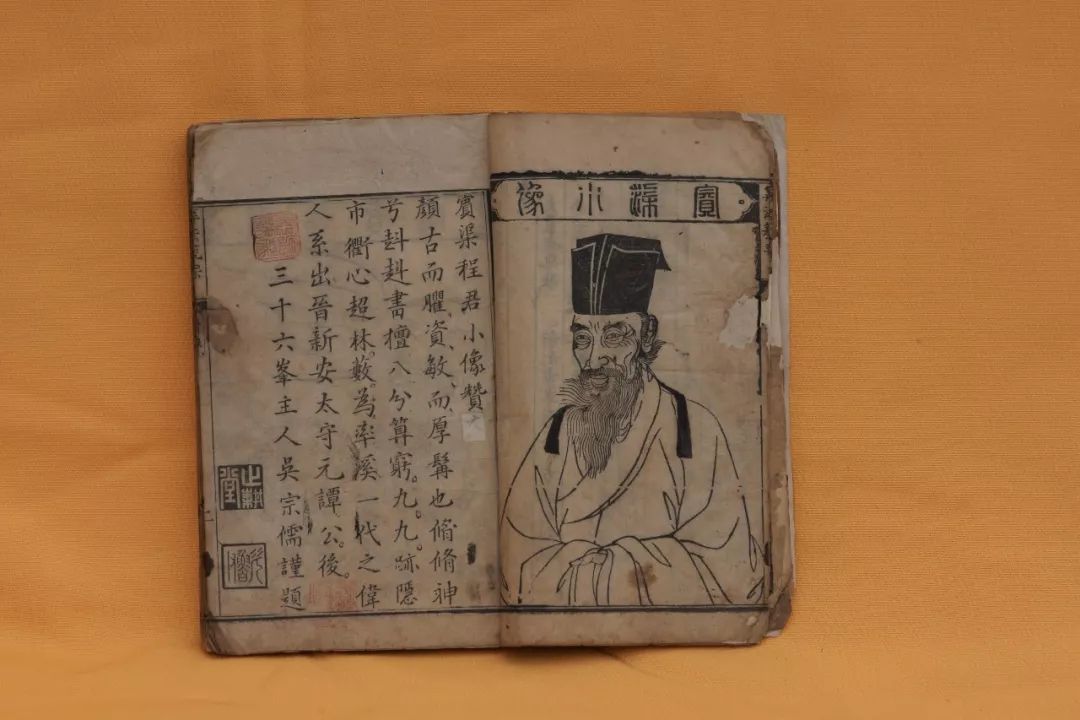 賓渠小像
賓渠程君小像贊
顏古而臞、資敏、而厚髯也脩脩神
兮赳赳書擅八分算窮。九九。跡隱
市衢心超林藪。為率溪一代之偉
人系出晉新安太守元譚公後。
三十六峯主人吳宗儒謹題